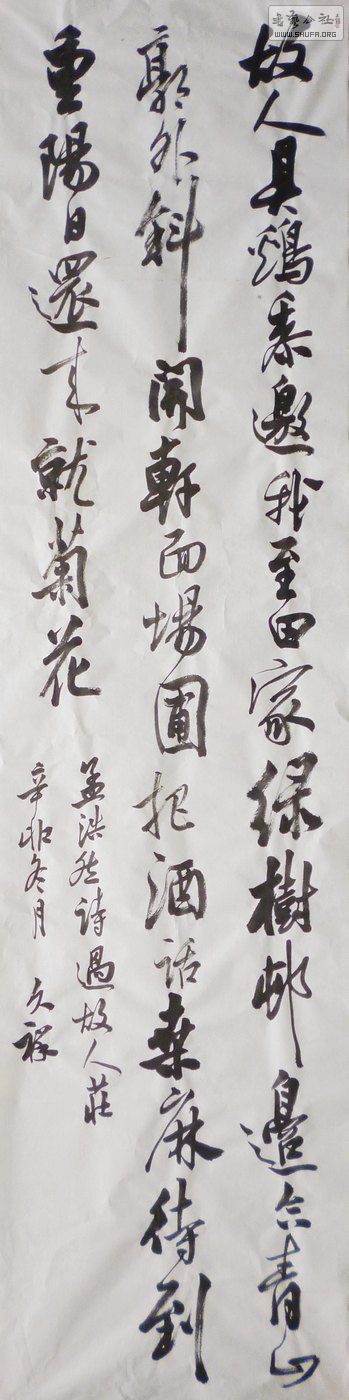 故人具鷄黍邀我至田家綠樹邨邊合青山
郭外斜開軒面場圃把酒話桑麻待到
重陽日還来就菊花
孟浩然詩過故人莊
辛卯冬月 久祥
WWW.SHUFA.ORG